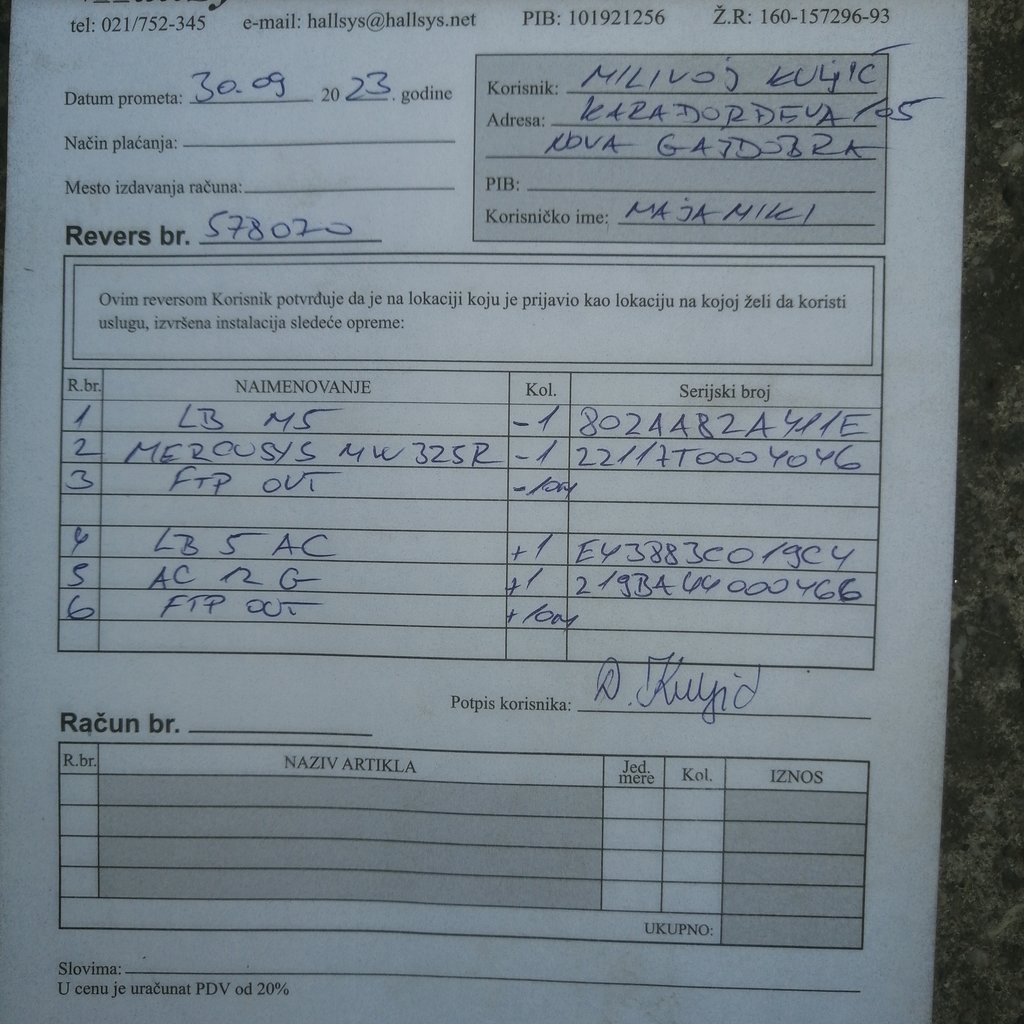 tel: 021/752-345 e-mail: hallsys@hallsys.net PIB: 101921256 Ž.R: 160-157296-93
Datum prometa: 30.09 2023. godine
Način plaćanja:
Mesto izdavanja računa:
Revers br. 578020
Korisnik: MILIVOJ KULJIĆ
Adresa: KARAĐORĐEVA 105
NOVA GAJDOBRA
PIB:
Korisničko ime: MAJAMIKI
Ovim reversom Korisnik potvrđuje da je na lokaciji koju je prijavio kao lokaciju na kojoj želi da koristi
uslugu, izvršena instalacija sledeće opreme:
R.br. NAIMENOVANJE Kol. Serijski broj
1 LB M5 -1 802AA82A411E
2 MERCUSYS MW325R -1 22117T0004046
3 FTP OUT -10m
4 LB 5 AC +1 E43883C019C4
5 AC 12 G +1 219BA44000466
6 FTP OUT +10m
Potpis korisnika: D. Kuljić
Račun br.
R.br. NAZIV ARTIKLA Jed. mere Kol. IZNOS
UKUPNO:
Slovima:
U cenu je uračunat PDV od 20%